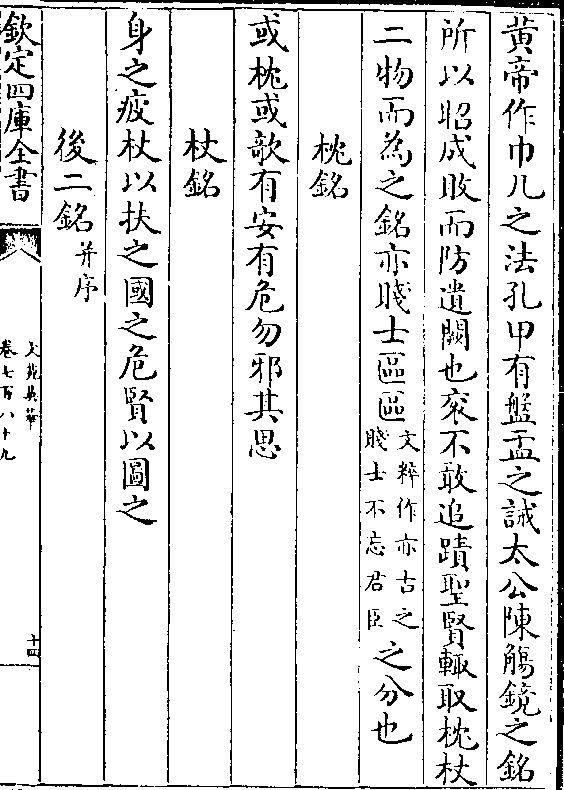 黄帝作巾几之法孔甲有盤盂之誡太公陳觴鏡之銘
所以昭成敗而防遺闕也衮不敢追蹟聖賢輙取枕杖
二物而為之銘亦賤士區區文粹作亦古之賤士不忘君臣之分也
枕銘
或枕或歌有安有危勿邪其思
杖銘
身之疲杖以扶之國之危賢以圖之
後二銘并序
欽定四庫全書
文苑英華
卷七百八十九
十四